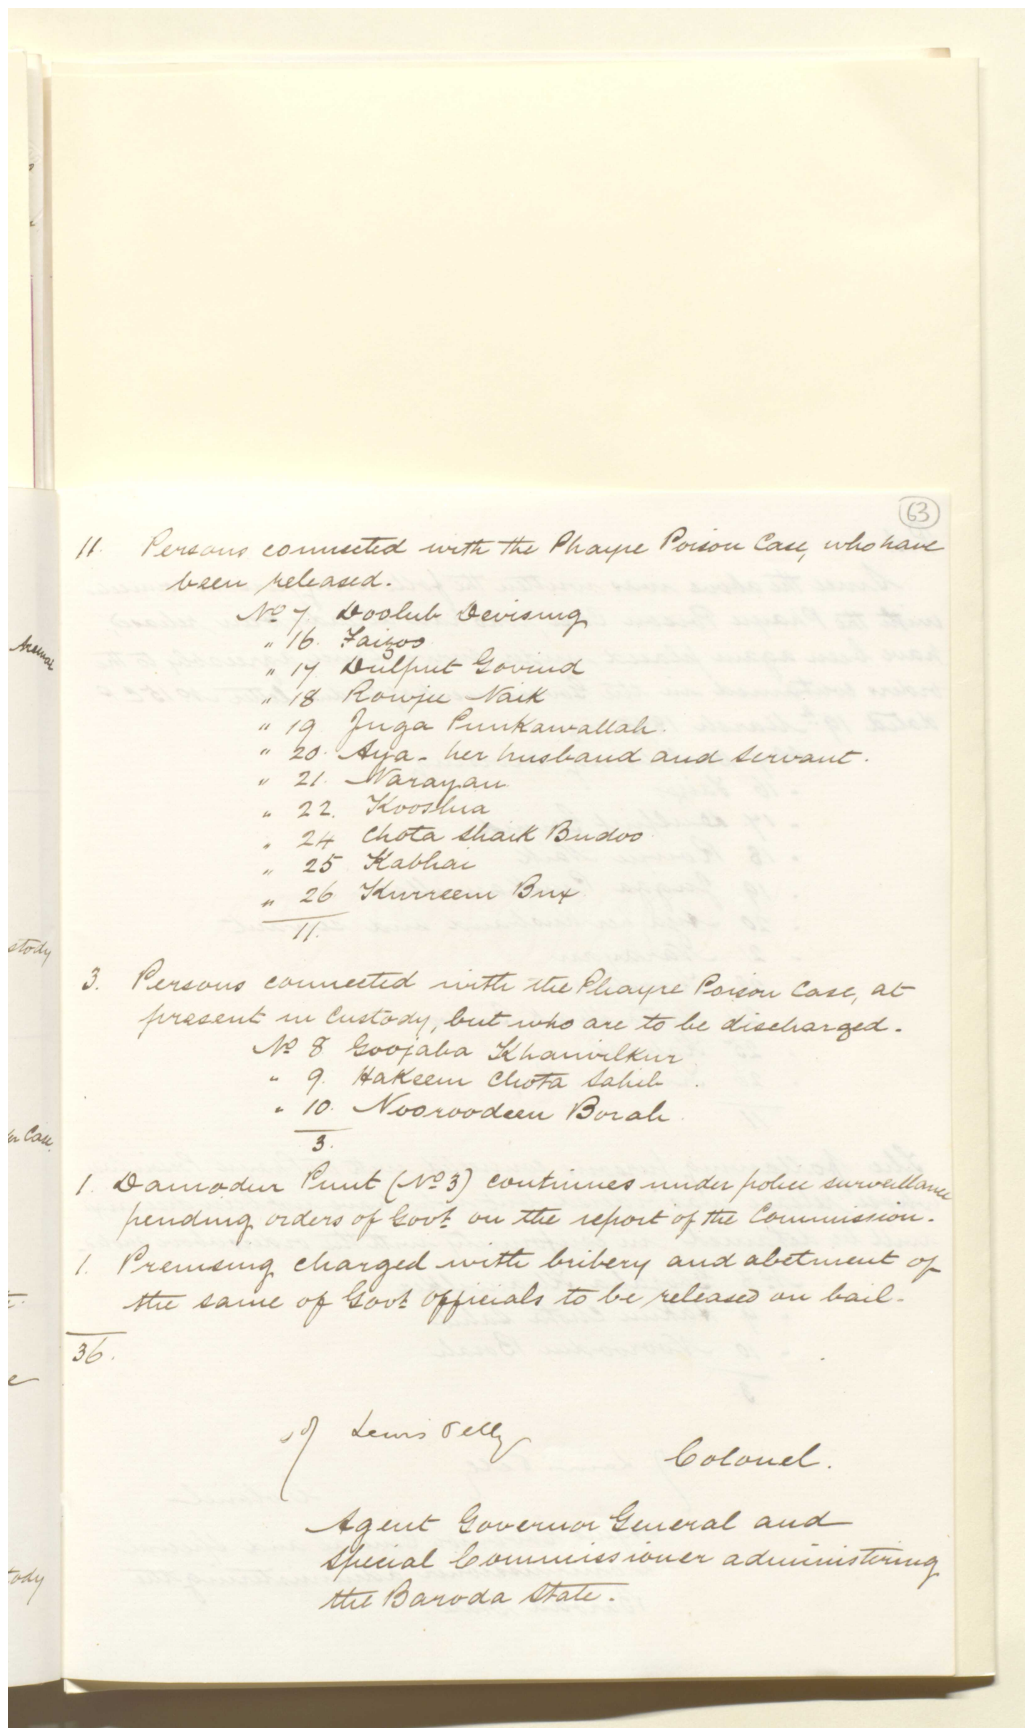 63
11. Persons connected with the Phayre Poison Case, who have
been released.
No 7. Doolub Devising
" 16. Faizoo
" 17 Dulput Govind
" 18 Rowjee Naik
" 19 Juga Punkawallah.
" 20. Aya - her husband and servant.
" 21. Narayan
" 22. Kooshia
" 24 Chota Shaik Budoo
" 25 Kabhai
" 26 Kurreem Bux
11.
3. Persons connected with the Phayre Poison Case, at
present in custody, but who are to be discharged.
No 8 Goojaba Khanvilkur
" 9. Hakeem Chota Sahib
" 10. Nooroodeen Borah
3.
1. Damodur Punt (No 3) continues under police surveillance
pending orders of Govt. on the report of the Commission.
1. Premsing charged with bribery and abetment of
the same of Govt. officials to be released on bail.
36.
sd/ Lewis Pelly
Colonel.
Agent Governor General and
Special Commissioner administering
the Baroda State.
stody
Case.
tody